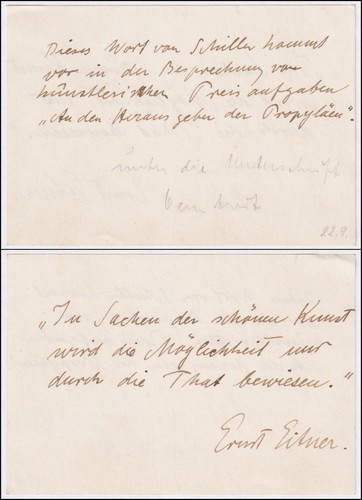 Dieses Wort von Schiller kommt
vor in der Besprechung von
künstlerischen Preisaufgaben
„An den Herausgeber der Propyläen".
unter die Unterschrift
22.9.
„In Sachen der schönen Kunst
wird die Möglichkeit nur
durch die That bewiesen."
Ernst Eitner.